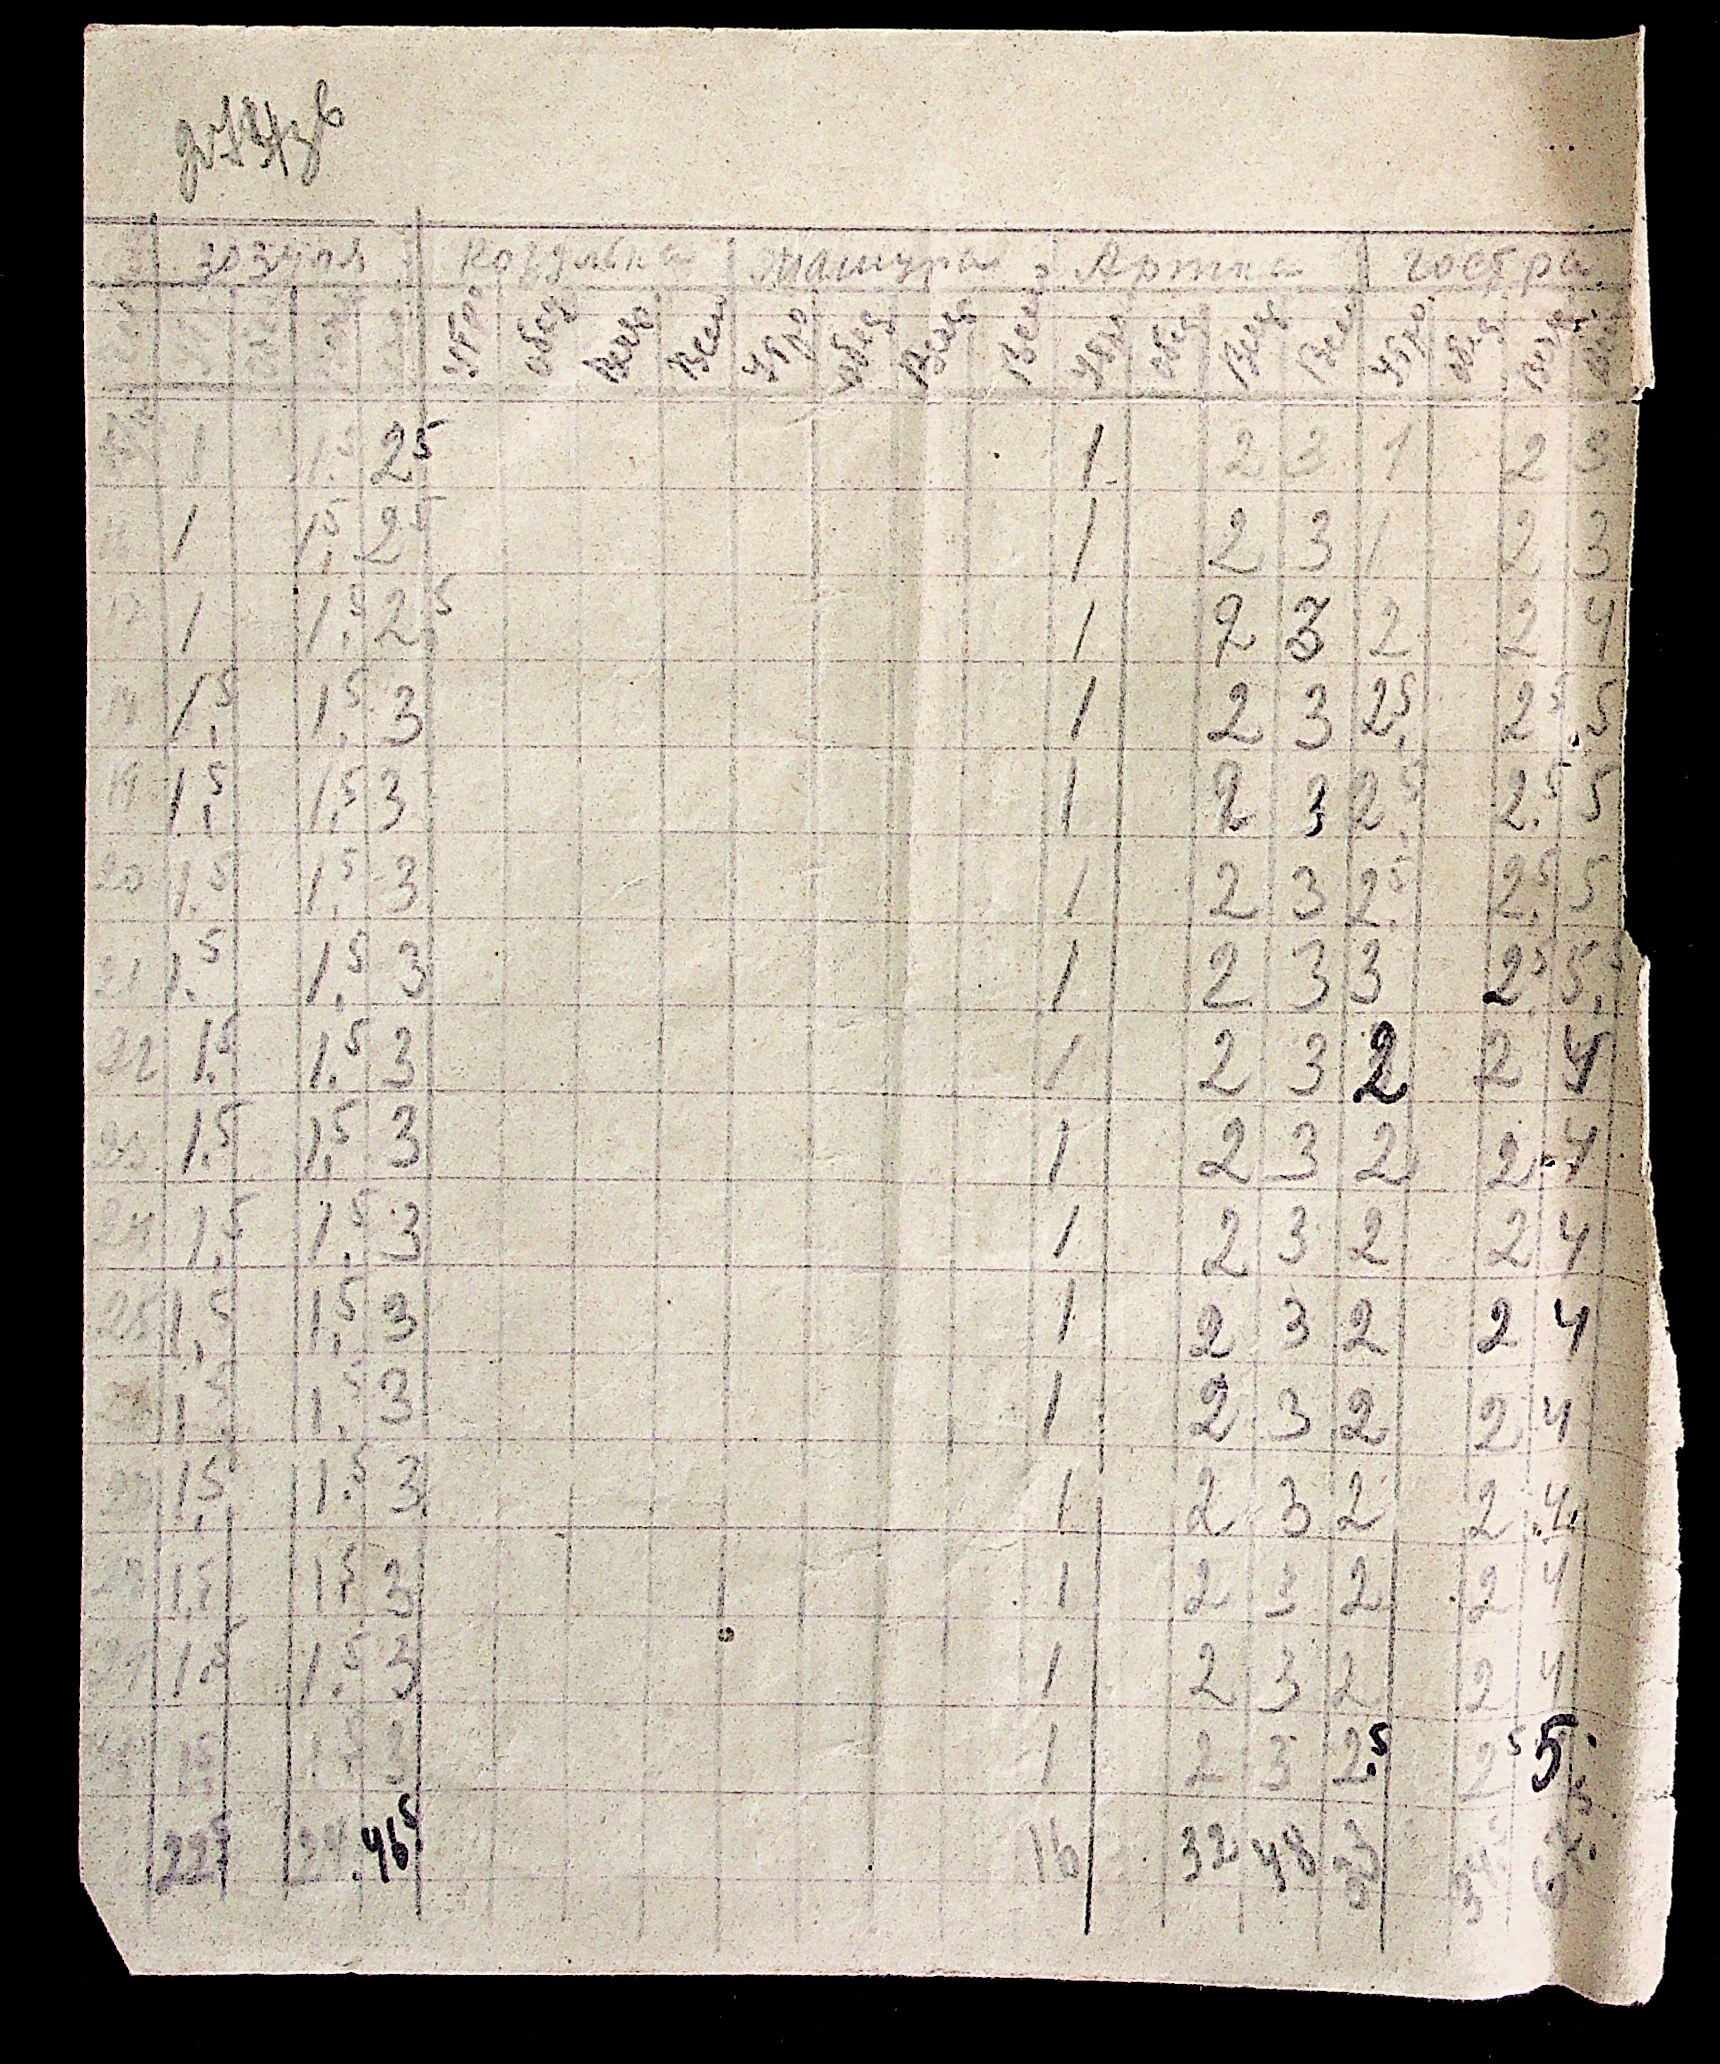 зозуля Машура Артка гостра
утро обед Веч Вси утро обед Веч Вси утро обед Веч Вси утро обед Веч
1 1.5 2 5 1. 2 3 1 2 3
1 1,5 2 5 1 2 3 1 2 3
17 1 1,5 2,5 1 2 3 2 2 4
1,5 1,5 3 1 2 3 2,5 2 5 5
19 1,5 1,5 3 1 2 3 2,5 2.5 5
20 1.5 1,5 3 1 2 3 2.5 2,5 5
21 1.5 1,5 3 1 2 3 3 2.5 5,5
22 1.5 1.5 3 1 2 3 2 2 4
23 1.5 1,5 3 1 2 3 2 2 4
24 1,5 1.5 3 1 2 3 2 2 4
25 1,5 1,5 3 1 2 3 2 2 4
1.5 1.5 3 1 2 3 2 2 4
1,5 1.5 3 1 2 3 2 2 4
1,5 1,5 3 1 2 3 2 2 4
1.5 1.5 3 1 2 3 2 2 4
1,5 1.5 3 1 2 3 2.5 2 5 5.5
22 5 24 46 5 16 32 48